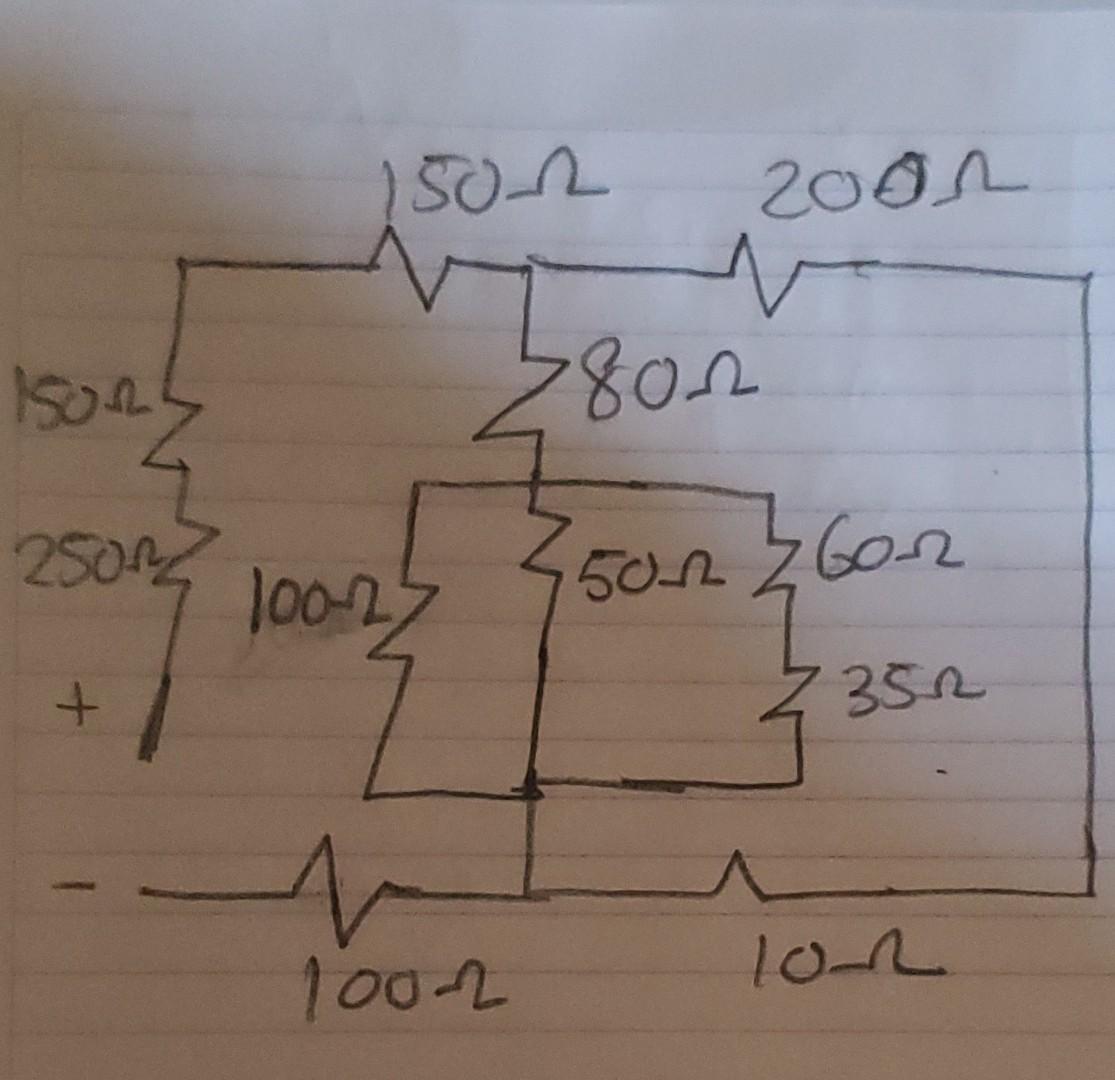 150Ω 200Ω
150Ω 80Ω
250Ω 100Ω 50Ω 60Ω
+ 35Ω
-
100Ω 10Ω